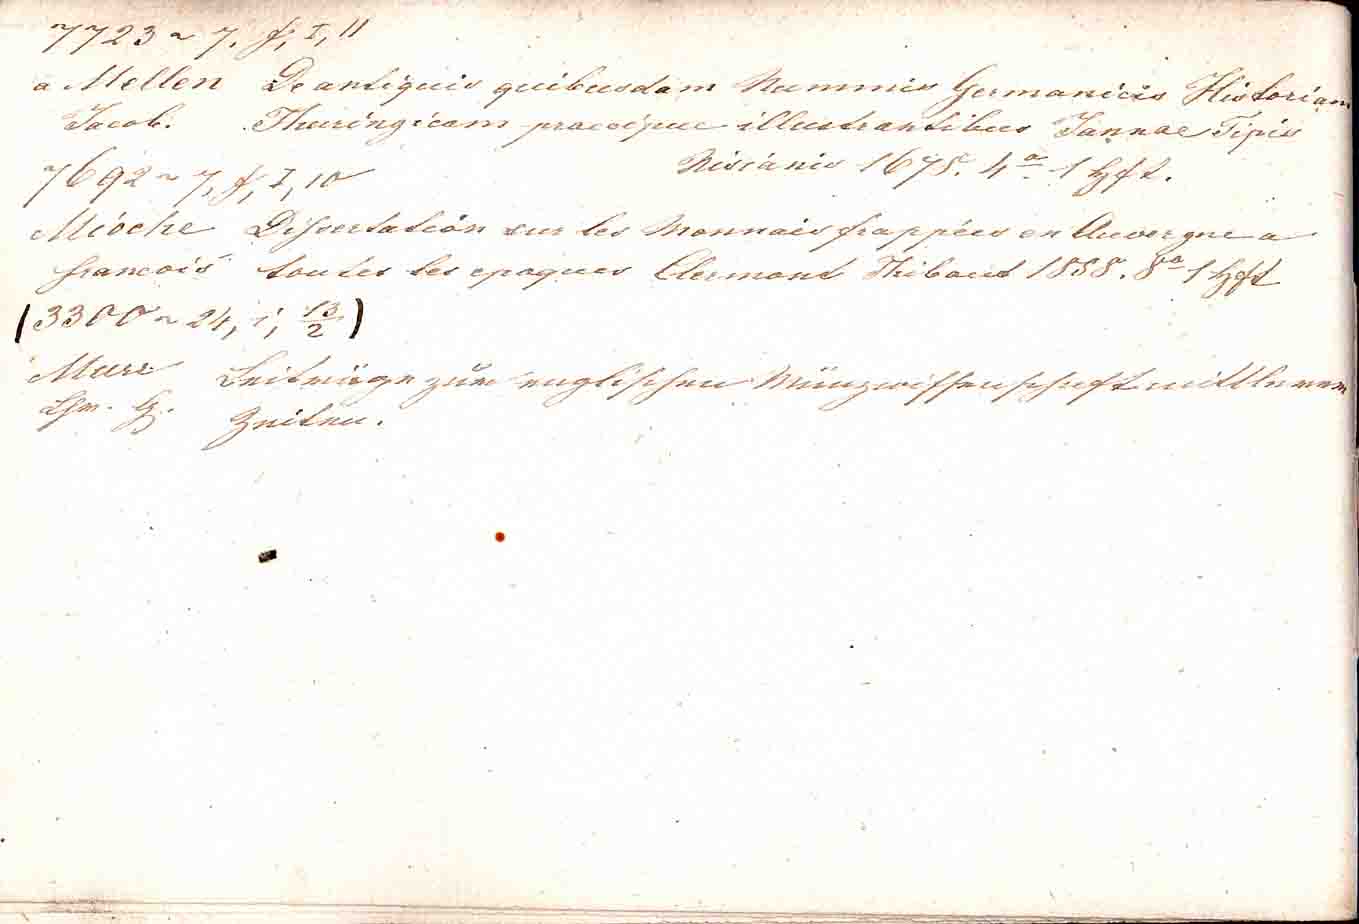 7723 ~ 7. f, I, 11
a Mellen De antiquis quibusdam Nummis Germanicis Historiam
Jacob. Thuringicam praecipue illustrantibus Jannae Tipis
Nisianis 1678. 4º 1 Hft.
7692 ~ 7, f, I, 10
Mióche Dissertation sur les Monnais frappées en Auvergne a
francois toutes les epoques Clermont Thibaut 1858. 8vo 1 Hft
(3300 ~ 24, i, 13/2)
Murr Beiträge zur englischen Münzwissenschaft mittlerem
Chr. G. Zeiten.